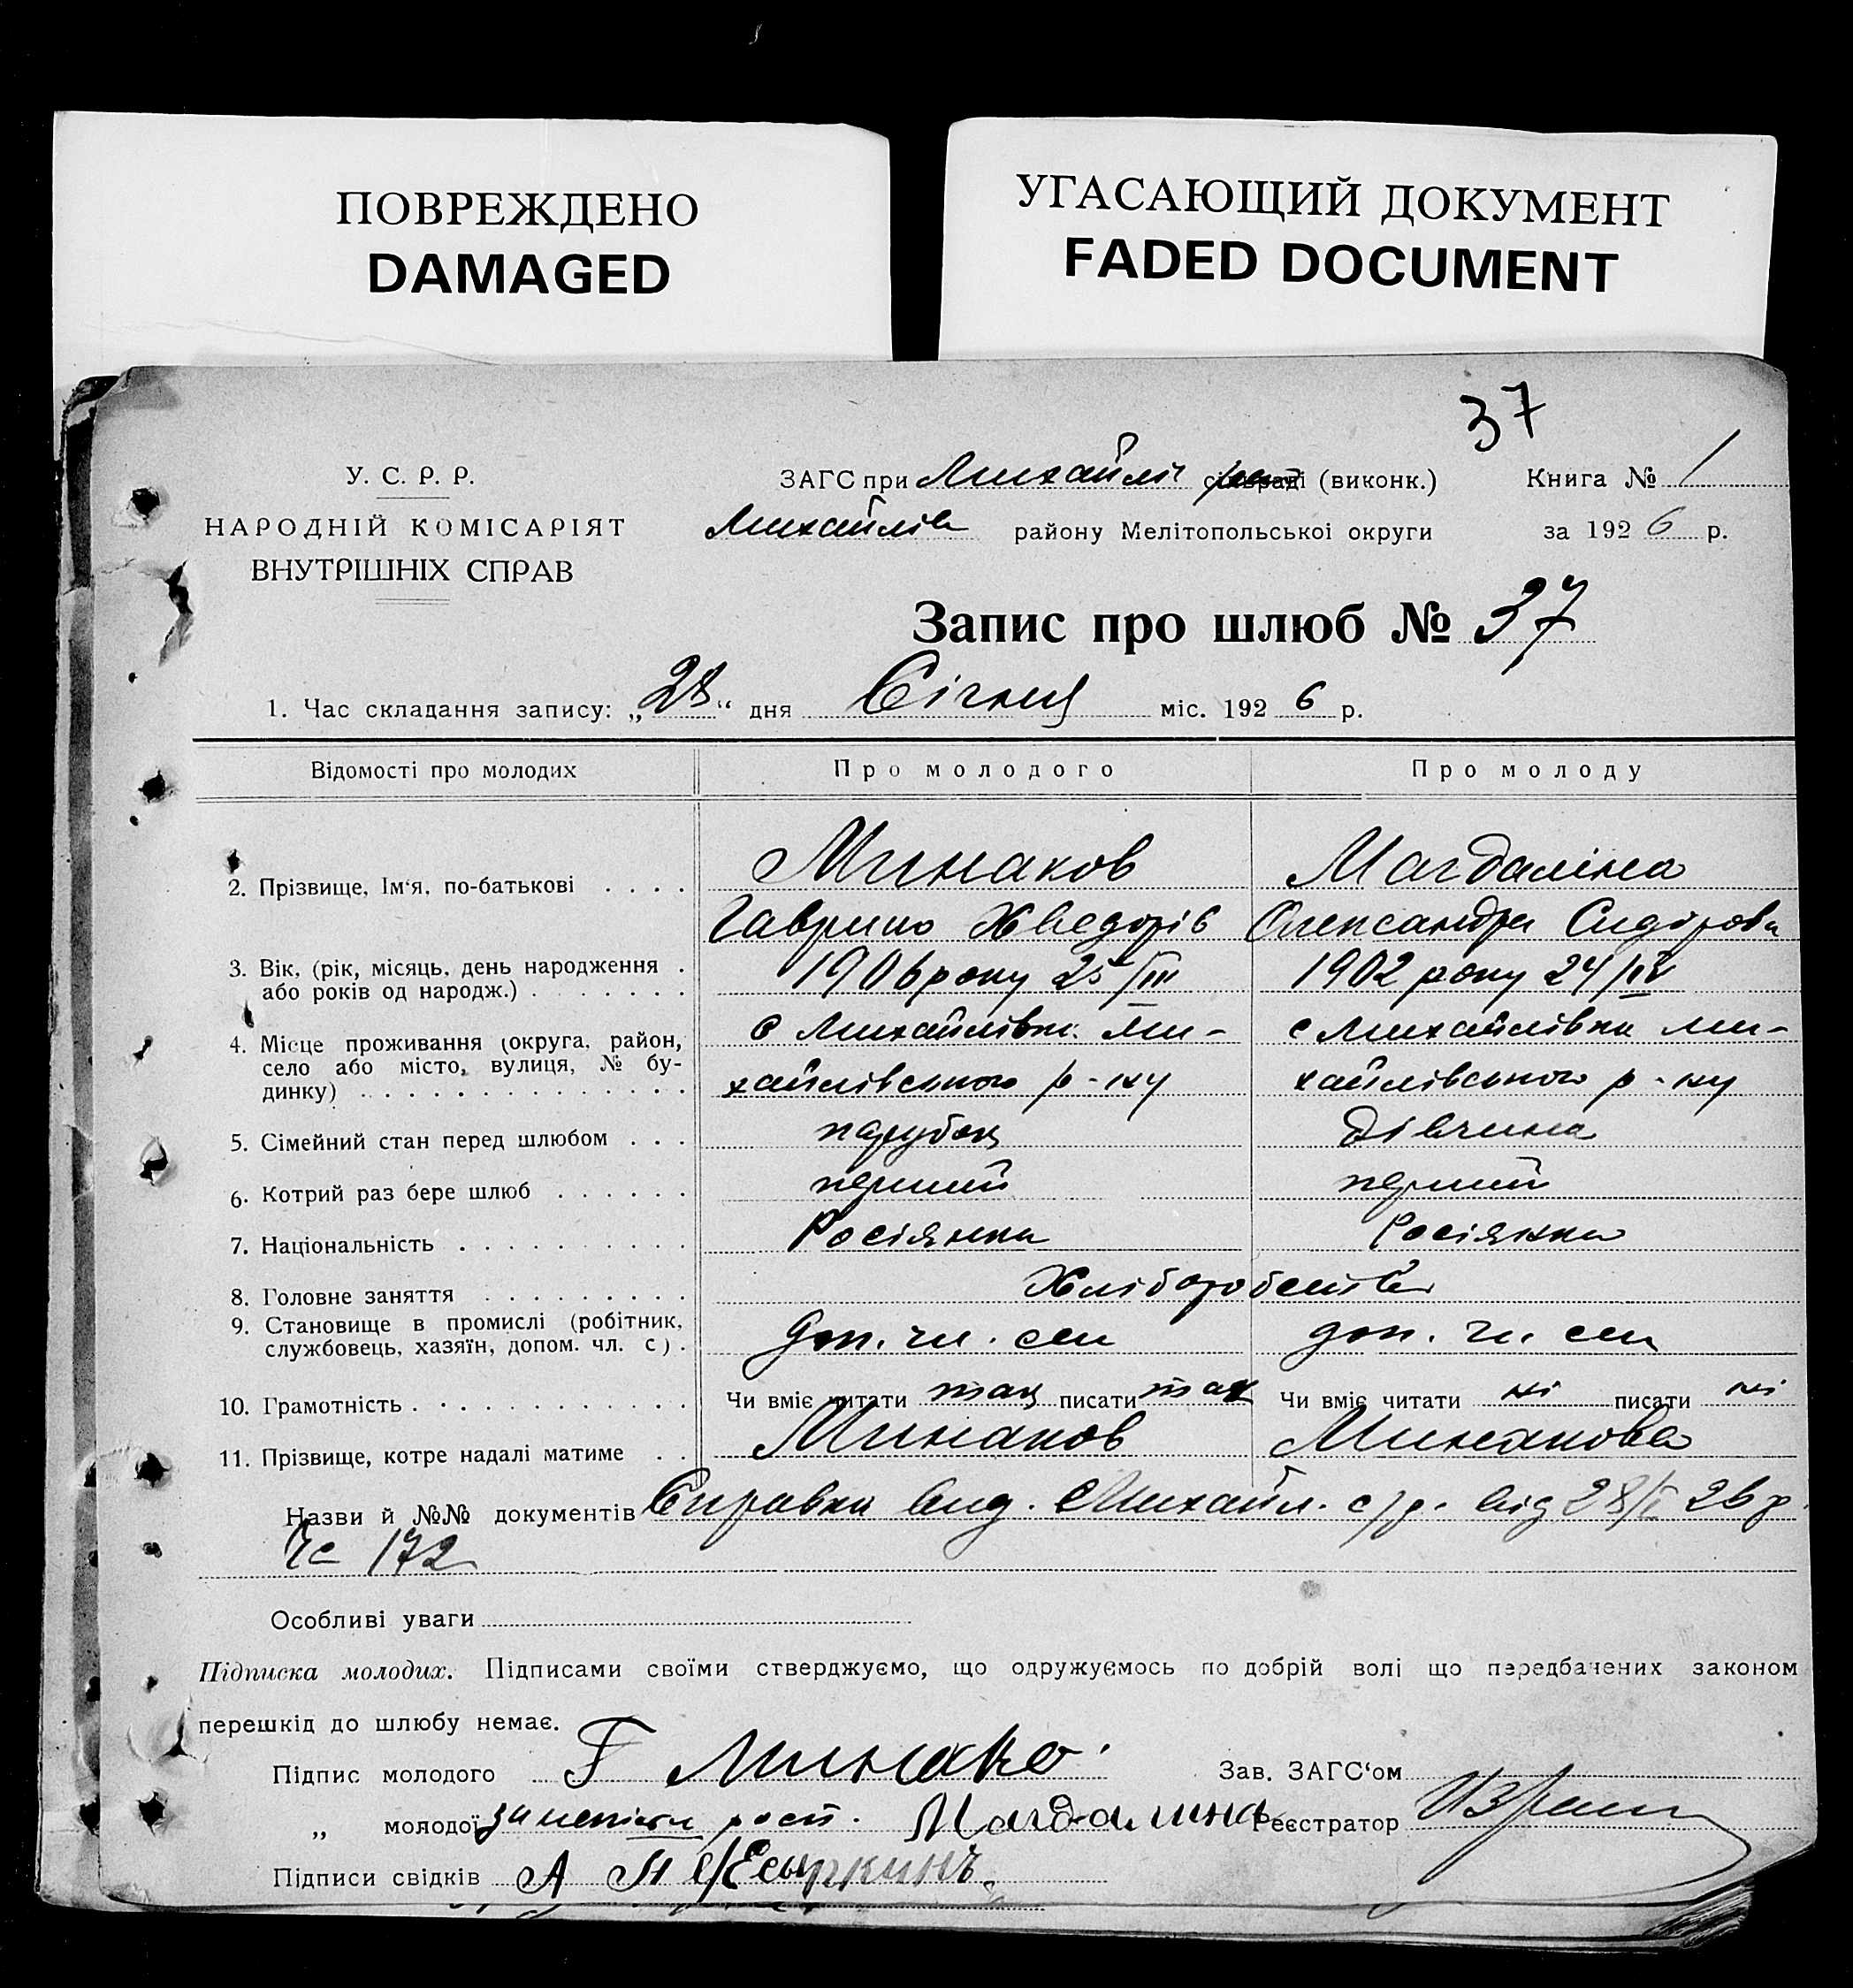 ПОВРЕЖДЕНО
DAMAGED
УГАСАЮЩИЙ ДОКУМЕНТ
FADED DOCUMENT
37
У. С. Р. Р.
НАРОДНІЙ КОМІСАРІЯТ
ВНУТРІШНІХ СПРАВ
ЗАГС при Михайлів сільраді (виконк.) Книга № 1
Михайлів району Мелітопольської округи за 1926 р.
Запис про шлюб № 37
1. Час складання запису: „28“ дня Січня міс. 1926 р.
Відомості про молодих Про молодого Про молоду
2. Прізвище, Ім‘я, по-батькові . . . . Минаков Магдаліна
Гаврило Хведорів Олександра Сидорова
3. Вік, (рік, місяць, день народження . 1906 року 25/III 1902 року 24/IV
або років од народж.) . . . . . . .
4. Місце проживання (округа, район, с Михайлівки Ми- с Михайлівки Ми-
село або місто, вулиця, № бу-
динку) . . . . . . . . . . . . . . . хайлівського р-ну хайлівського р-ну
5. Сімейний стан перед шлюбом . . . парубок дівчина
6. Котрий раз бере шлюб . . . . . . перший перший
7. Національність . . . . . . . . . . Росіянин Росіянка
8. Головне заняття . . . . . . . . . Хліборобство
9. Становище в промислі (робітник,
службовець, хазяїн, допом. чл. с) . доп. чл. сем доп. чл. сем
10. Грамотність . . . . . . . . . . . . Чи вміє читати так писати так Чи вміє читати ні писати ні
11. Прізвище, котре надалі матиме . . Минаков Минакова
Назви й №№ документів Справка вид. Михайл. с/р. від 28/I 26 р.
Че 172
Особливі уваги
Підписка молодих. Підписами своїми стверджуємо, що одружуємось по добрій волі що передбачених законом
перешкід до шлюбу немає.
Підпис молодого Г Минако Зав. ЗАГС‘ом
„ молодої за непісьм расп. Магдалина Реєстратор
Підписи свідків А